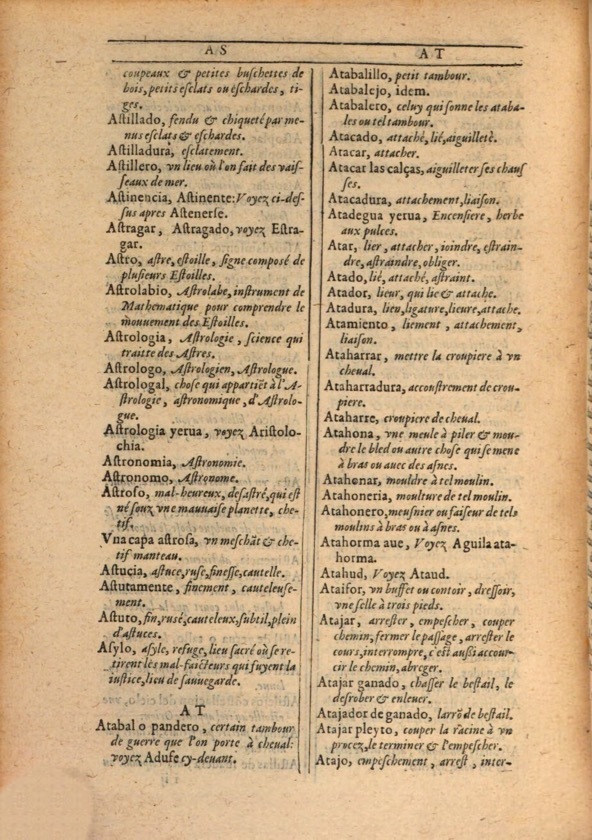 AS
coupeaux & petites buschettes de
bois, petits esclats ou eschardes, ti-
ges.
Astillado, fendu & chiqueté par me-
nus esclats & eschardes.
Astilladura, esclatement.
Astillero, vn lieu où l'on fait des vais-
seaux de mer.
Astinencia, Astinente: Voyez ci-des-
sus apres Astenerse.
Astragar, Astragado, voyez Estra-
gar.
Astro, astre, estoille, signe composé de
plusieurs Estoilles.
Astrolabio, Astrolabe, instrument de
Mathematique pour comprendre le
mouuement des Estoilles.
Astrologia, Astrologie, science qui
traitte des Astres.
Astrologo, Astrologien, Astrologue.
Astrologal, chose qui appartiẽt à l'A-
strologie, astronomique, d'Astrolo-
gue.
Astrologia yerua, voyez Aristolo-
chia.
Astronomia, Astronomie.
Astronomo, Astronome.
Astroso, mal-heureux, desastré, qui est
né souz vne mauuaise planette, che-
tif.
Vna capa astrosa, vn meschãt & che-
tif manteau.
Astucia, astuce, ruse, finesse, cautelle.
Astutamente, finement, cauteleuse-
ment.
Astuto, fin, rusé, cauteleux, subtil, plein
d'astuces.
Asylo, asyle, refuge, lieu sacré où se re-
tirent les mal-faicteurs qui fuyent la
iustice, lieu de sauuegarde.
AT
Atabal o pandero, certain tambour
de guerre que l'on porte à cheual:
voyez Adufe cy-deuant.
AT
Atabalillo, petit tambour.
Atabalejo, idem.
Atabalero, celuy qui sonne les ataba-
les ou tel tambour.
Atacado, attaché, lié, aiguilleté.
Atacar, attacher.
Atacar las calças, aiguilleter ses chaus
ses.
Atacadura, attachement, liaison.
Atadegua yerua, Encensiere, herbe
aux pulces.
Atar, lier, attacher, ioindre, estrain-
dre, astraindre, obliger.
Atado, lié, attaché, astraint.
Atador, lieur, qui lie & attache.
Atadura, lieu, ligature, lieure, attache.
Atamiento, liement, attachement,
liaison.
Ataharrar, mettre la croupiere à vn
cheual.
Ataharradura, accoustrement de crou-
piere.
Ataharre, croupiere de cheual.
Atahona, vne meule à piler & mou-
dre le bled ou autre chose qui se mene
à bras ou auec des asnes.
Atahonar, mouldre à tel moulin.
Atahoneria, moulture de tel moulin.
Atahonero, meusnier ou faiseur de tels
moulins à bras ou à asnes.
Atahorma aue, Voyez Aguila ata-
horma.
Atahud, Voyez Ataud.
Ataifor, vn buffet ou contoir, dressoir,
vne selle à trois pieds.
Atajar, arrester, empescher, couper
chemin, fermer le passage, arrester le
cours, interrompre, c'est aussi accour-
cir le chemin, abreger.
Atajar ganado, chasser le bestail, le
desrober & enleuer.
Atajador de ganado, larrõ de bestail.
Atajar pleyto, couper la racine à vn
procez, le terminer & l'empescher.
Atajo, empeschement, arrest, inter-